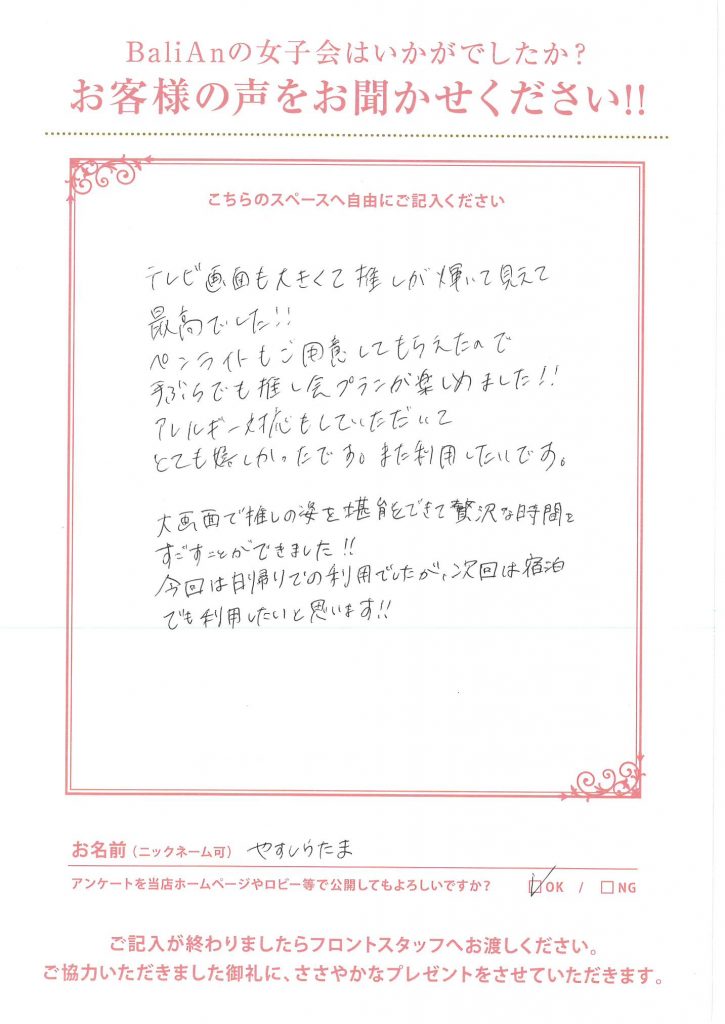 BaliAnの女子会はいかがでしたか?
お客様の声をお聞かせください!!
こちらのスペースへ自由にご記入ください
テレビ画面も大きくて推しが輝いて見えて
最高でした!!
ペンライトもご用意してもらえたので
手ぶらでも推し会プランが楽しめました!!
アレルギー対応もしていただいて
とても嬉しかったです。また利用したいです。
大画面で推しの姿を堪能できて贅沢な時間を
すごすことができました!!
今回は日帰りでの利用でしたが、次回は宿泊
でも利用したいと思います!!
お名前(ニックネーム可) やすしらたま
アンケートを当店ホームページやロビー等で公開してもよろしいですか? ☑OK / □NG
ご記入が終わりましたらフロントスタッフへお渡しください。
ご協力いただきました御礼に、ささやかなプレゼントをさせていただきます。